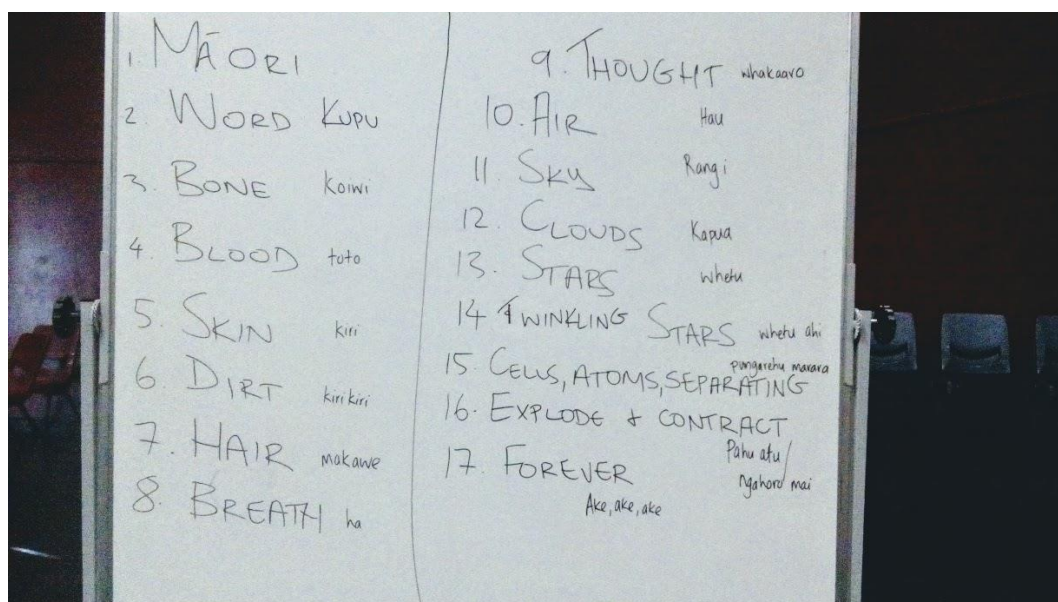 1. MĀORI
2. WORD Kupu
3. BONE Koiwi
4. BLOOD toto
5. SKIN kiri
6. DIRT kiri kiri
7. HAIR makawe
8. BREATH ha
9. THOUGHT whakaaro
10. AIR Hau
11. SKY Rangi
12. CLOUDS Kapua
13. STARS whetu
14 TWINKLING STARS whetu ahi
15. CELLS, ATOMS, SEPARATING pungarehu marara
16. EXPLODE & CONTRACT
Pahu atu/
ngahoro mai
17. FOREVER
Ake, ake, ake